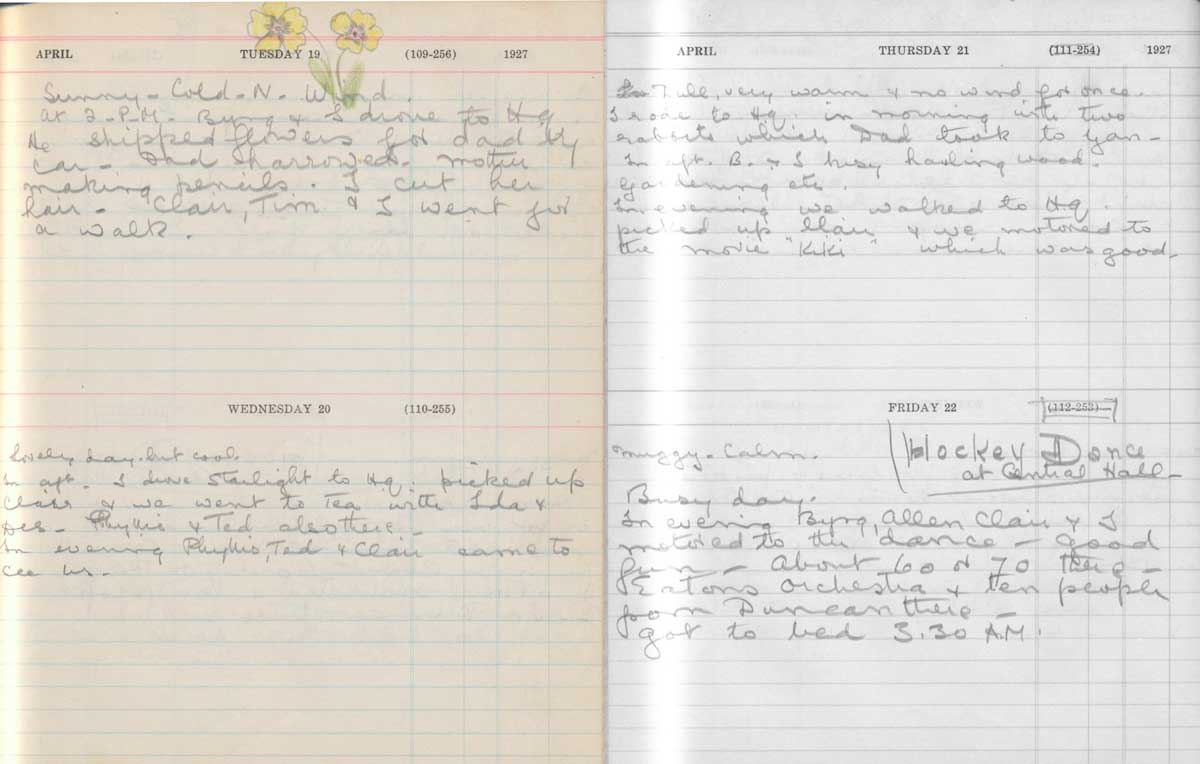 APRIL TUESDAY 19 (109-256) 1927
Sunny - Cold - N - Wind.
at 2 - P.M. Byng & I drove to Hq
He shipped flowers for dad by
car - Dad harrowed - mother
making pencils. I cut her
hair - Clair, Tim & I went for
a walk.
WEDNESDAY 20 (110-255)
Lovely day - but cool
In aft. I drove Starlight to Hq. picked up
Clair & we went to Tea with Ida &
Des - Phyllis & Ted also there -
In evening Phyllis, Ted & Clair came to
see us -
APRIL THURSDAY 21 (111-254) 1927
very warm & no wind for once.
I rode to Hq. in morning with two
which Dad took to
In aft. B. & I busy hauling wood -
gardening etc.
In evening we walked to Hq.
picked up Clair & we motored to
the movie "KiKi" which was good -
FRIDAY 22 (112-253)
Hockey Dance
at Central Hall -
Muggy - Calm.
Busy day.
In evening Byng, Allen Clair & I
motored to the dance - good
fun - About 60 or 70 there -
Eatons Orchestra & ten people
from Duncan there -
got to bed 3.30 A.M.